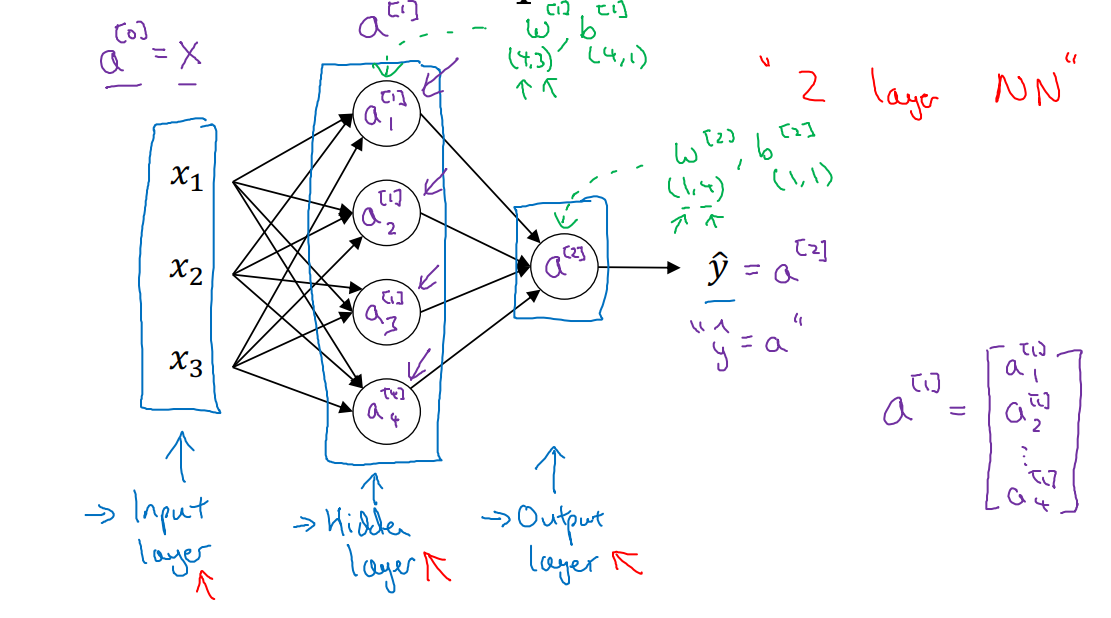 a^[0] = X
a^[1]
w^[1], b^[1]
(4,3) (4,1)
" 2 layer NN "
x₁
x₂
x₃
a₁^[1]
a₂^[1]
a₃^[1]
a₄^[4]
w^[2], b^[2]
(1,4) (1,1)
a^[2]
ŷ = a^[2]
"ŷ = a"
a^[1] = [a₁^[1]
a₂^[1]
⋮
a₄^[1]]
→ Input
layer
→ Hidden
layer
→ Output
layer